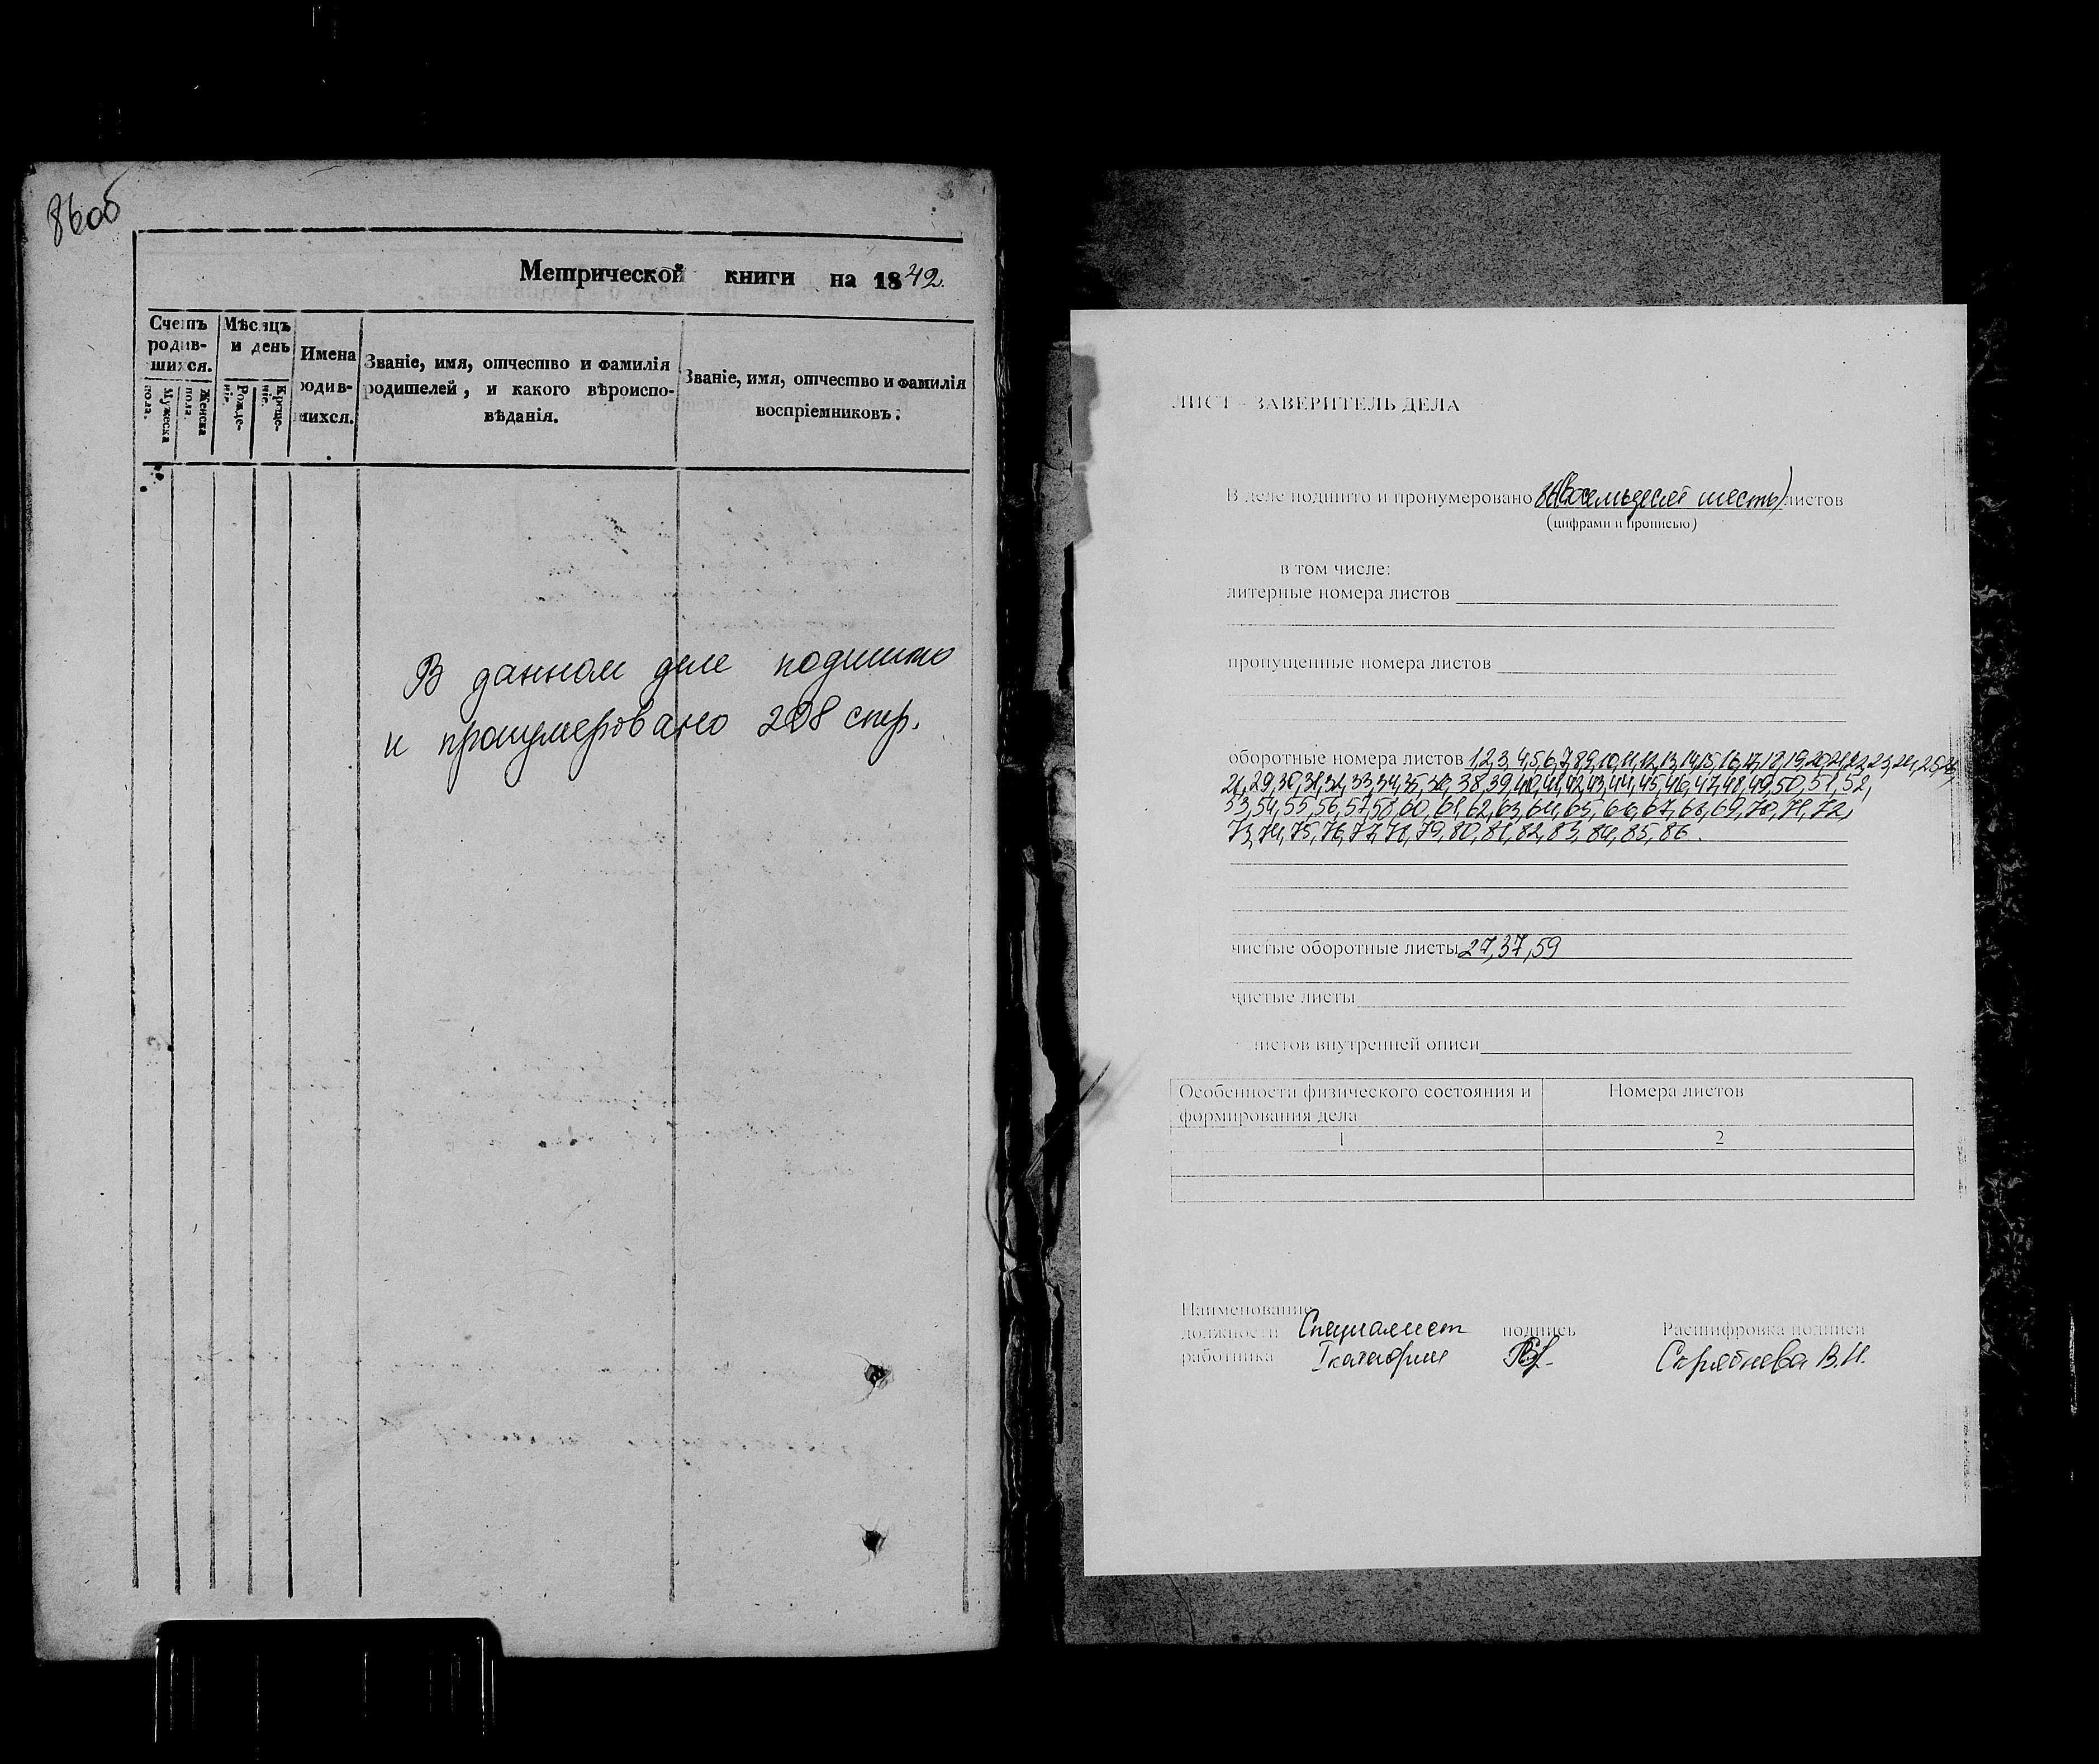 86об
Метрической книги на 1842.
Счетъ
родив-
шихся.
Мужеска
пола.
Женска
пола.
Мѣсяцъ
и день
Рожде-
ніе.
Креще-
ніе.
Имена
родив-
шихся.
Званіе, имя, отчество и фамилія
родителей, и какого вѣроиспо-
вѣданія.
Званіе, имя, отчество и фамилія
воспріемниковъ.
В данном деле подшито
и пронумеровано 208 стр.
ЛИСТ - ЗАВЕРИТЕЛЬ ДЕЛА
В деле подшито и пронумеровано 86(восемьдесят шесть) листов
(цифрами и прописью)
в том числе:
литерные номера листов
пропущенные номера листов
оборотные номера листов 1,2,3,4,5,6,7,8,9,10,11,12,13,14,15,16,17,18,19,20,21,22,23,24,25,26,
28,29,30,31,32,33,34,35,36,38,39,40,41,42,43,44,45,46,47,48,49,50,51,52,
53,54,55,56,57,58,60,61,62,63,64,65,66,67,68,69,70,71,72,
73,74,75,76,77,78,79,80,81,82,83,84,85,86.
чистые оборотные листы 27,37,59
чистые листы
листов внутренней описи
Особенности физического состояния и
формирования дела
Номера листов
1 2
Наименование
должности Специалист подпись Расшифровка подписи
работника I категории В.И.